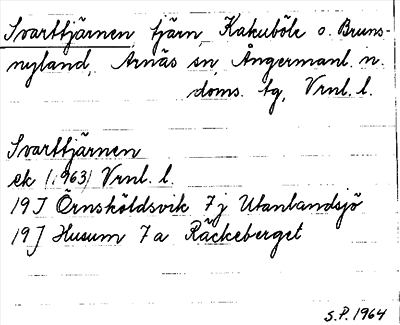 Svarttjärnen, tjärn, Kakuböle o. Bruns-
nyland, Arnäs sn, Ångermanl. n.
doms. tg, Vrnl. l.
Svarttjärnen
ek (1963) Vrnl. l.
19 I Örnsköldsvik 7j Utanlandsjö
19 J Husum 7a Räckeberget
S.P. 1964